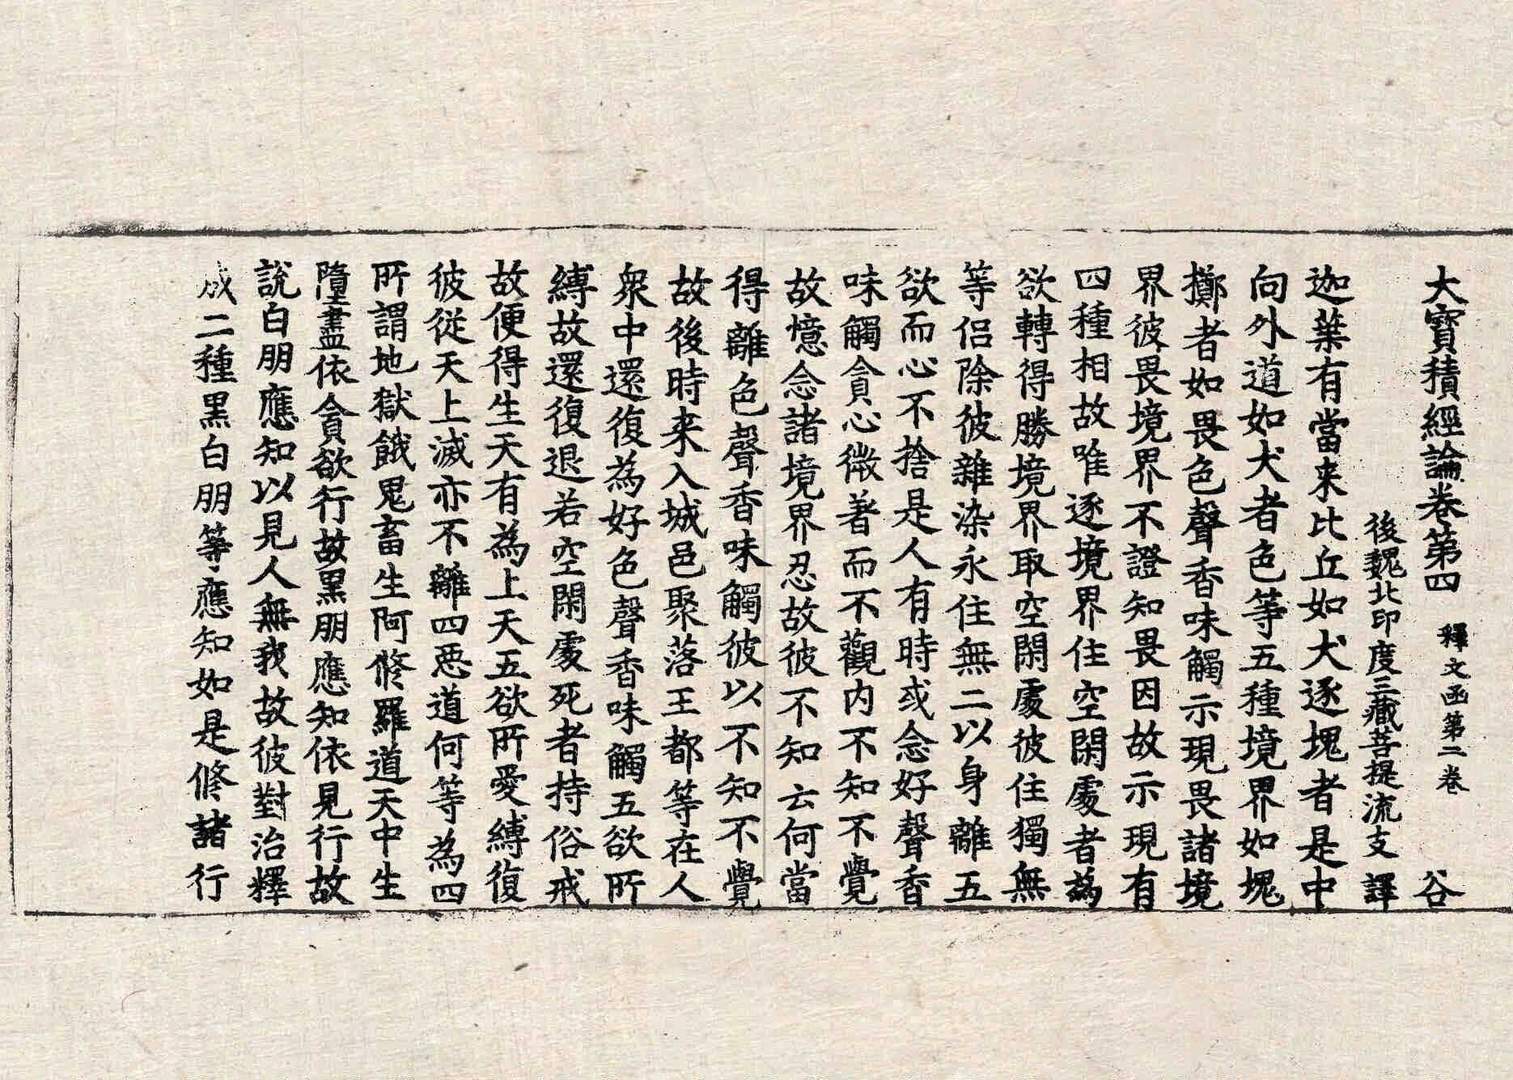 大寶積經論卷第四 釋文函第二卷 谷
後魏北印度三藏菩提流支譯
迦葉有當来比丘如犬逐塊者是中
向外道如犬者色等五種境界如塊
擲者如畏色聲香味觸示現畏諸境
界彼畏境界不證知畏因故示現有
四種相故唯逐境界住空閑處者為
欲轉得勝境界取空閑處彼住獨無
等侶除彼雜染永住無二以身離五
欲而心不捨是人有時或念好聲香
味觸貪心微著而不觀内不知不覺
故憶念諸境界忍故彼不知云何當
得離色聲香味觸彼以不知不覺
故後時来入城邑聚落王都等在人
衆中還復為好色聲香味觸五欲所
縛故還復退若空閑處死者持俗戒
故便得生天有為上天五欲所愛縛復
彼從天上滅亦不離四惡道何等為四
所謂地獄餓鬼畜生阿修羅道天中生
墮盡依貪欲行故黑朋應知依見行故
說白朋應知以見人無我故彼對治釋
成二種黑白朋等應知如是修諸行